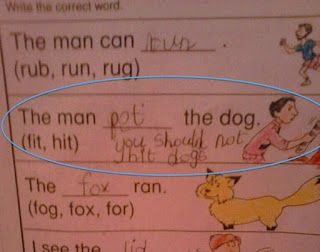 Write the correct word.
The man can run .
(rub, run, rug)
The man pot the dog.
(fit, hit) you should not
hit dogs
The fox ran.
(fog, fox, for)
I see the lid